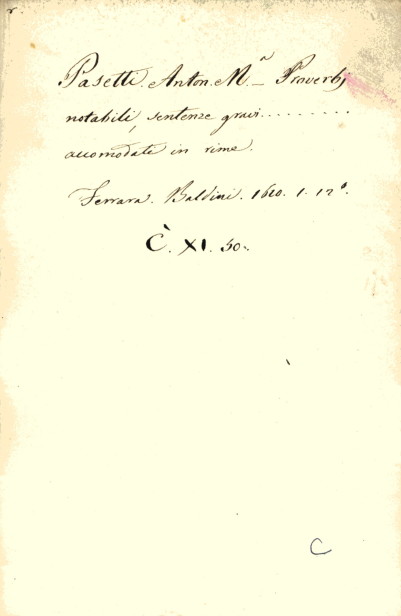 Pasetti. Anton. Mª_ Proverbj
notabili, sentenze gravi.........
accomodate in rime.
Ferrara. Baldini. 1610. 1. 12°.
C. XI. 50.
C